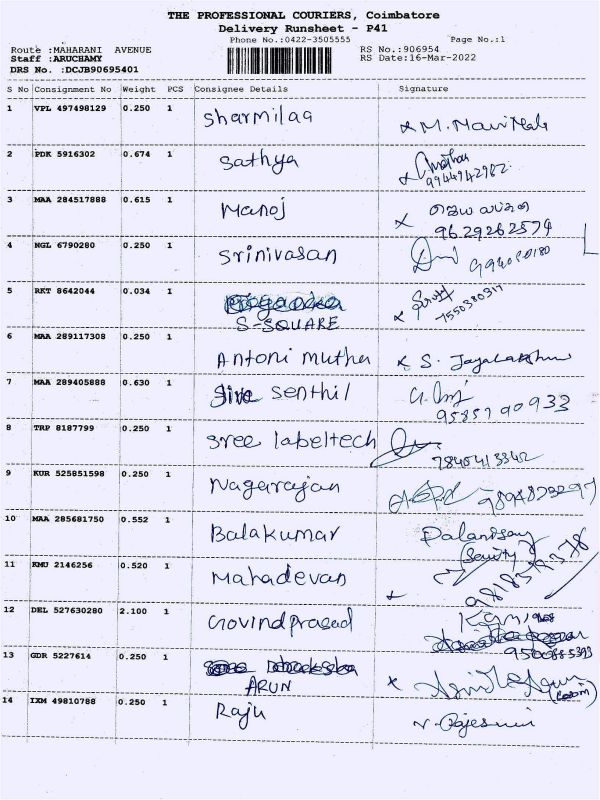 THE PROFESSIONAL COURIERS, Coimbatore
Delivery Runsheet - P41
Phone No.:0422-3505555 Page No.:1
Route :MAHARANI AVENUE RS No.:906954
Staff :ARUCHAMY RS Date:16-Mar-2022
DRS No. :DCJB90695401
S No Consignment No Weight PCS Consignee Details Signature
1 VPL 497498129 0.250 1 Sharmilaa
2 PDK 5916302 0.674 1 Sathya
9944942982
3 MAA 284517888 0.615 1 Manoj
9629262574
4 NGL 6790280 0.250 1 Srinivasan
5 RKT 8642044 0.034 1
S-SQUARE 7550380317
6 MAA 289117308 0.250 1 Antoni Muthu S. Jayalakshmi
7 MAA 289405888 0.630 1 Senthil
9585790933
8 TRP 8187799 0.250 1 Sree labeltech
7845413342
9 KUR 525851598 0.250 1 Nagarajan
10 MAA 285681750 0.552 1 Balakumar Palanisay
11 KMU 2146256 0.520 1 Mahadevan
12 DEL 527630280 2.100 1 Govindprasad
9500885393
13 GDR 5227614 0.250 1
ARUN
14 IXM 49810788 0.250 1 Raju